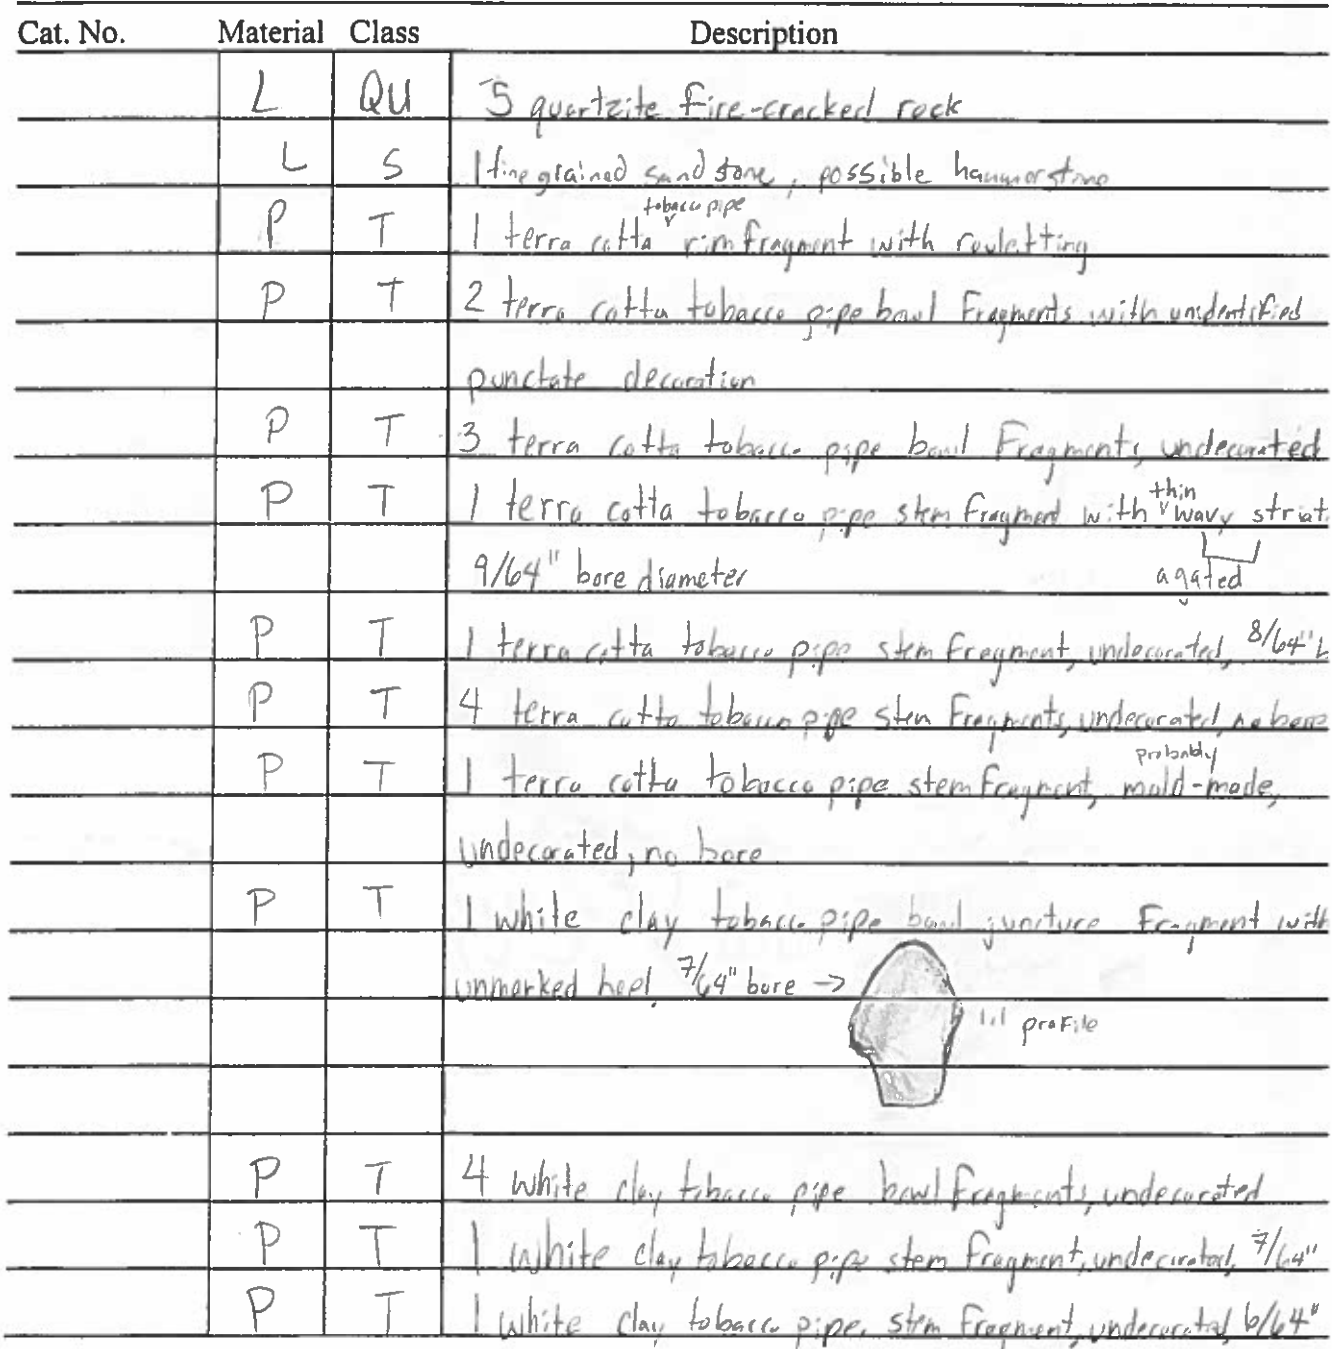 Cat. No. Material Class Description
L QU 5 quartzite fire-cracked rock
L S 1 fine grained sand stone, possible hammerstone
tobacco pipe
P T 1 terra cotta rim fragment with rouletting
P T 2 terra cotta tobacco pipe bowl fragments with unidentified
punctate decoration
P T 3 terra cotta tobacco pipe bowl fragments, undecorated
thin
P T 1 terra cotta tobacco pipe stem fragment with wavy striat
9/64" bore diameter agated
P T 1 terra cotta tobacco pipe stem fragment, undecorated, 8/64" b
P T 4 terra cotta tobacco pipe stem fragments, undecorated, no bore
probably
P T 1 terra cotta tobacco pipe stem fragment, mold-made,
undecorated, no bore
P T 1 white clay tobacco pipe bowl juncture fragment with
unmarked heel, 7/64" bore →
1:1 profile
P T 4 white clay tobacco pipe bowl fragments, undecorated
P T 1 white clay tobacco pipe stem fragment, undecorated, 7/64"
P T 1 white clay tobacco pipe stem fragment, undecorated, 6/64"